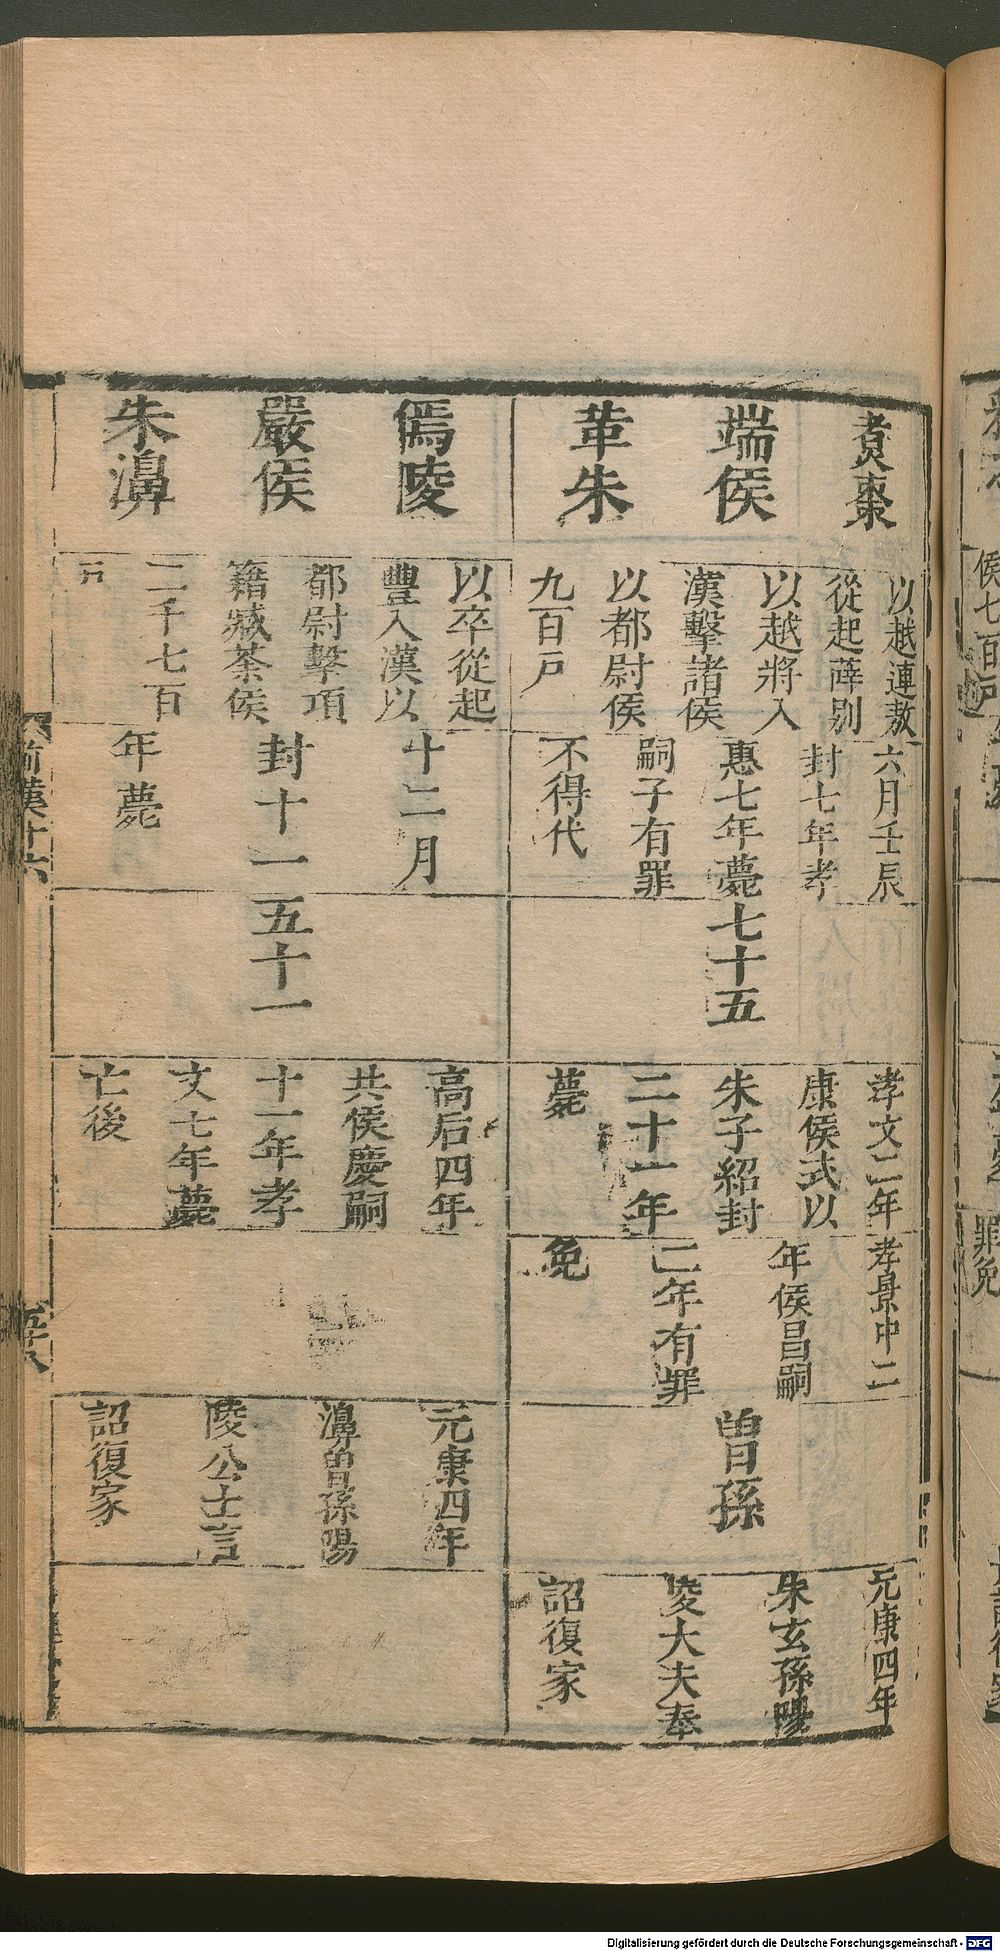 煑棗
端侯
革朱
以越連敖
從起薛別
以越將入
漢擊諸侯
以都尉侯
九百戸
六月壬辰
封七年孝
惠七年薨
嗣子有罪
不得代
七十五
孝文二年
康侯式以
朱子紹封
二十一年
薨
孝景中二
年侯昌嗣
二年有罪
免
曾孫
元康四年
朱玄孫陽
陵大夫奉
詔復家
傿陵
嚴侯
朱濞
以卒從起
豐入漢以
都尉擊項
籍臧荼侯
二千七百
戸
十二月
封十一
年薨
五十一
高后四年
共侯慶嗣
十一年孝
文七年薨
亡後
元康四年
濞曾孫陽
陵公士言
詔復家
前漢十六
侯七百戸
罪免
Digitalisierung gefördert durch die Deutsche Forschungsgemeinschaft - DFG